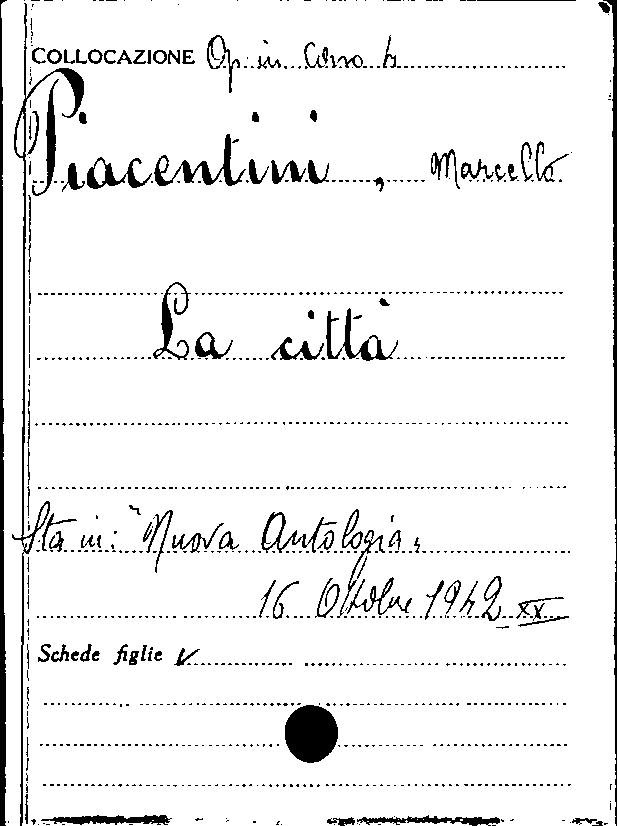 COLLOCAZIONE Op. in Corso 4
Piacentini, Marcello
La città
Sta in: "Nuova Antologia"
16 Ottobre 1942 XX
Schede figlie ✓